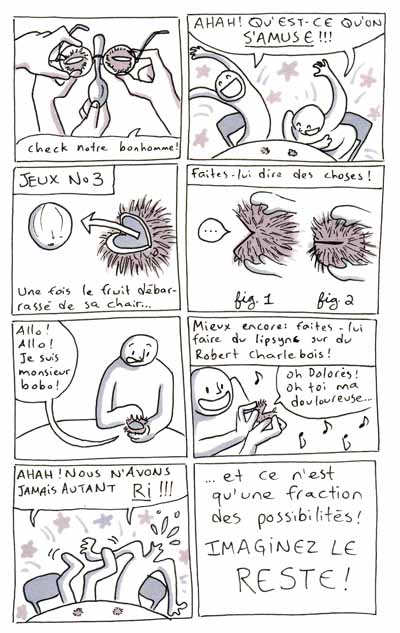 check notre bonhomme!
AHAH! QU'EST-CE QU'ON
S'AMUSE!!!
JEUX No 3
Une fois le fruit débar-
rassé de sa chair...
Faites-lui dire des choses!
...
fig. 1
fig 2
Allo!
Allo!
Je suis
monsieur
bobo!
Mieux encore: faites-lui
faire du lipsync sur du
Robert Charlebois!
oh Dolorès!
Oh toi ma
douloureuse...
AHAH! NOUS N'AVONS
JAMAIS AUTANT RI!!!
... et ce n'est
qu'une fraction
des possibilités!
IMAGINEZ LE
RESTE!